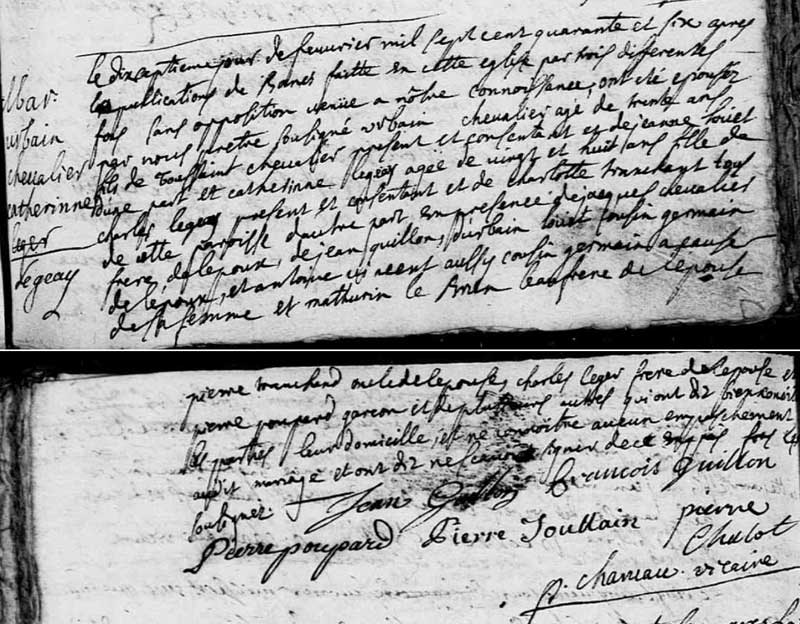 Mar.
urbain
chevallier
catherinne
leger
legeay
le dixseptieme jour de feuvrier mil sept cent quarante et six apres
les publications de Bancs faitte En cette eglise par trois differentes
fois sans opposition venue a nôtre connoissance, ont été epousez
par nous prêtre soubsigné urbain chevalier agé de trente ans
fils de Toussaint chevalier present et consentant et de jeanne louet
d'une part et catherinne legeay agée de vingt et huit ans fille de
charles legeay present et consentant et de charlotte tranchant tous
de cette paroisse d'autre part En presence de jacques chevalier
frere, de lepoux, de jean quillon, d'urbain louet cousin germain
de lepoux, et antoine vincent aussy cousin germain a cause
de sa femme et mathurin le beaufrere de lepouse
pierre tranchand oncle de lepouse, charles leger frere de lepouse et
pierre poupard garcon et de plusieurs autres qui ont dit bien connoitre
les parties leur domicille, et ne connoitre aucun empeschement
audit mariage et ont dit ne scavoir signer de ce Enquis fors les
soubsignez.
Jean Guillon francois Quillon
Pierre poupard Pierre Toullain pierre
Chalot
P. chaneau. vicaire